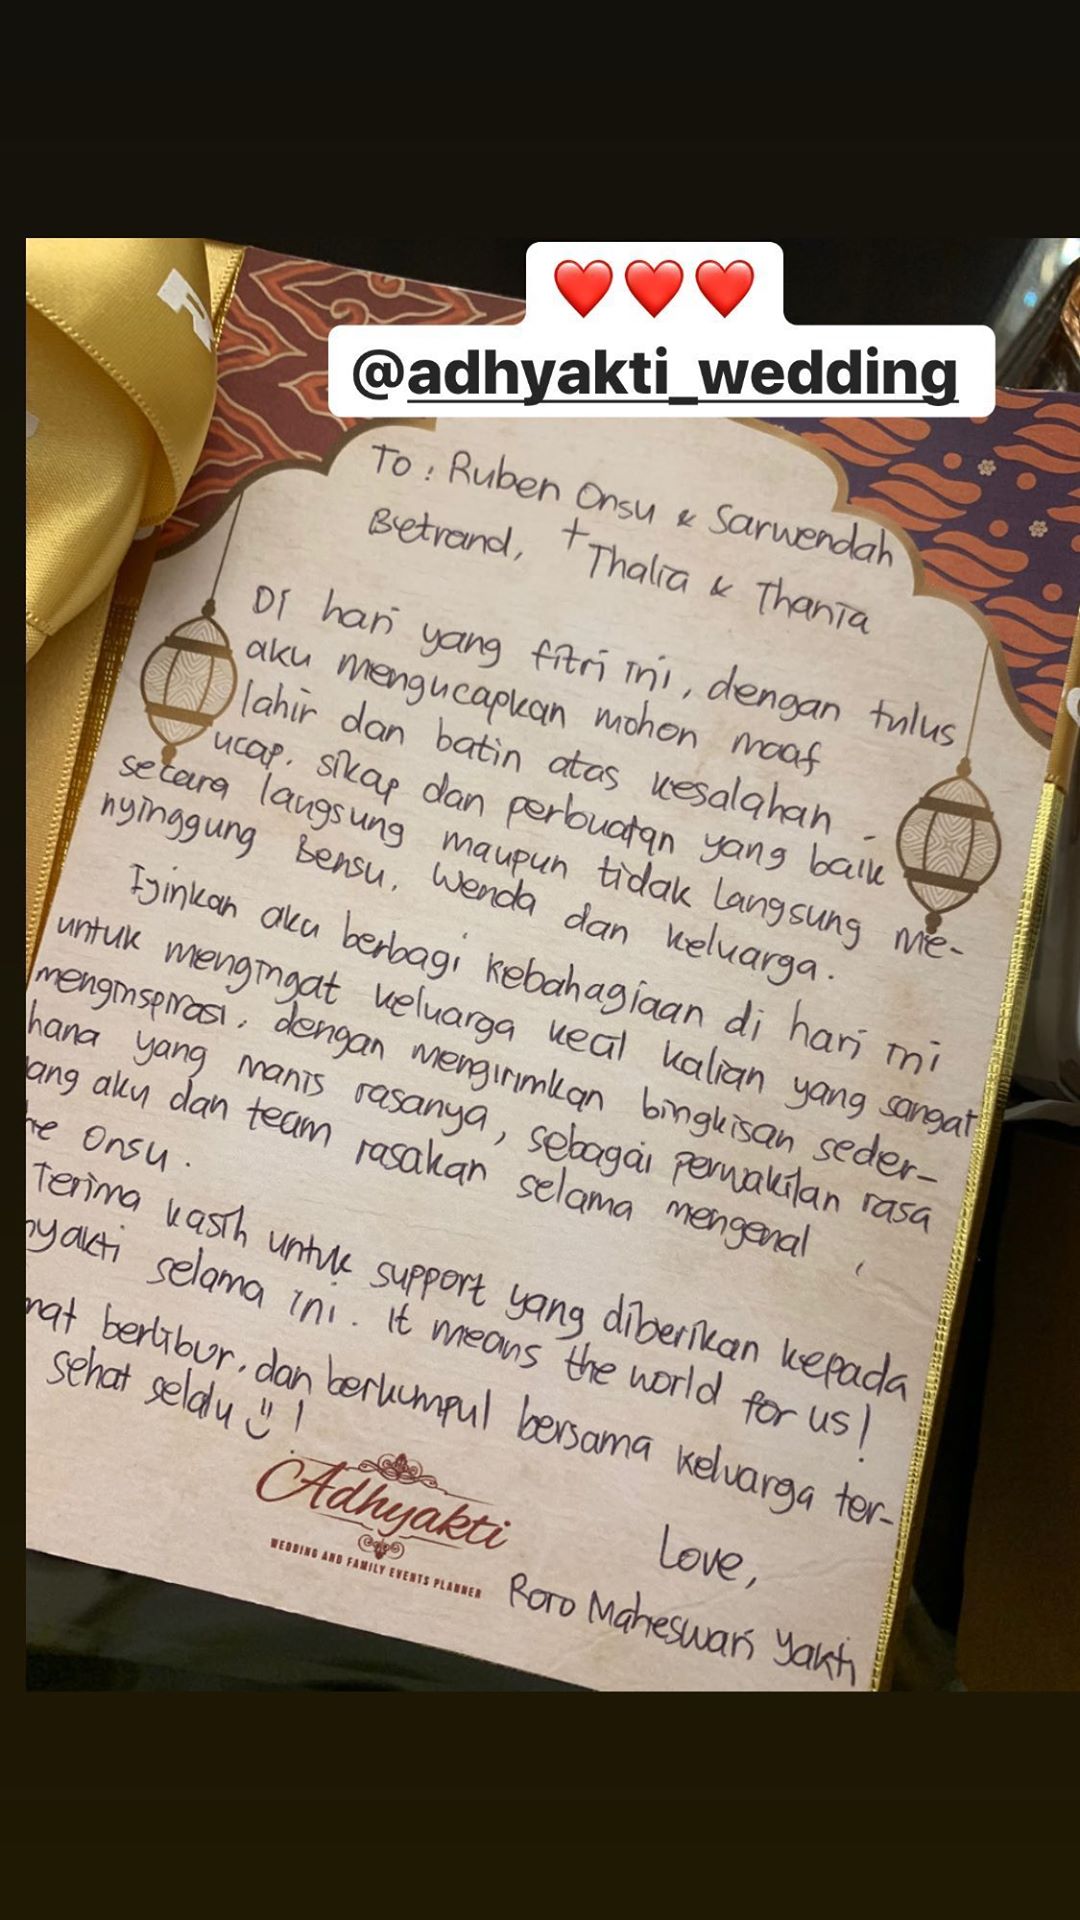 ❤️❤️❤️
@adhyakti_wedding
To : Ruben Onsu & Sarwendah
+
Betrand, Thalia & Thania
Di hari yang fitri ini, dengan tulus
aku mengucapkan mohon maaf
lahir dan batin atas kesalahan
ucap, sikap dan perbuatan yang baik
secara langsung maupun tidak langsung me-
nyinggung Bensu, Wenda dan keluarga.
Ijinkan aku berbagi kebahagiaan di hari ini
untuk mengingat keluarga kecil kalian yang sangat
menginspirasi, dengan mengirimkan bingkisan seder-
hana yang manis rasanya, sebagai perwakilan rasa
ang aku dan team rasakan selama mengenal
he Onsu.
Terima kasih untuk support yang diberikan kepada
hyakti selama ini. It means the world for us!
mat berlibur, dan berkumpul bersama keluarga ter-
sehat selalu !
Adhyakti
WEDDING AND FAMILY EVENTS PLANNER
Love,
Roro Maheswari Yakti